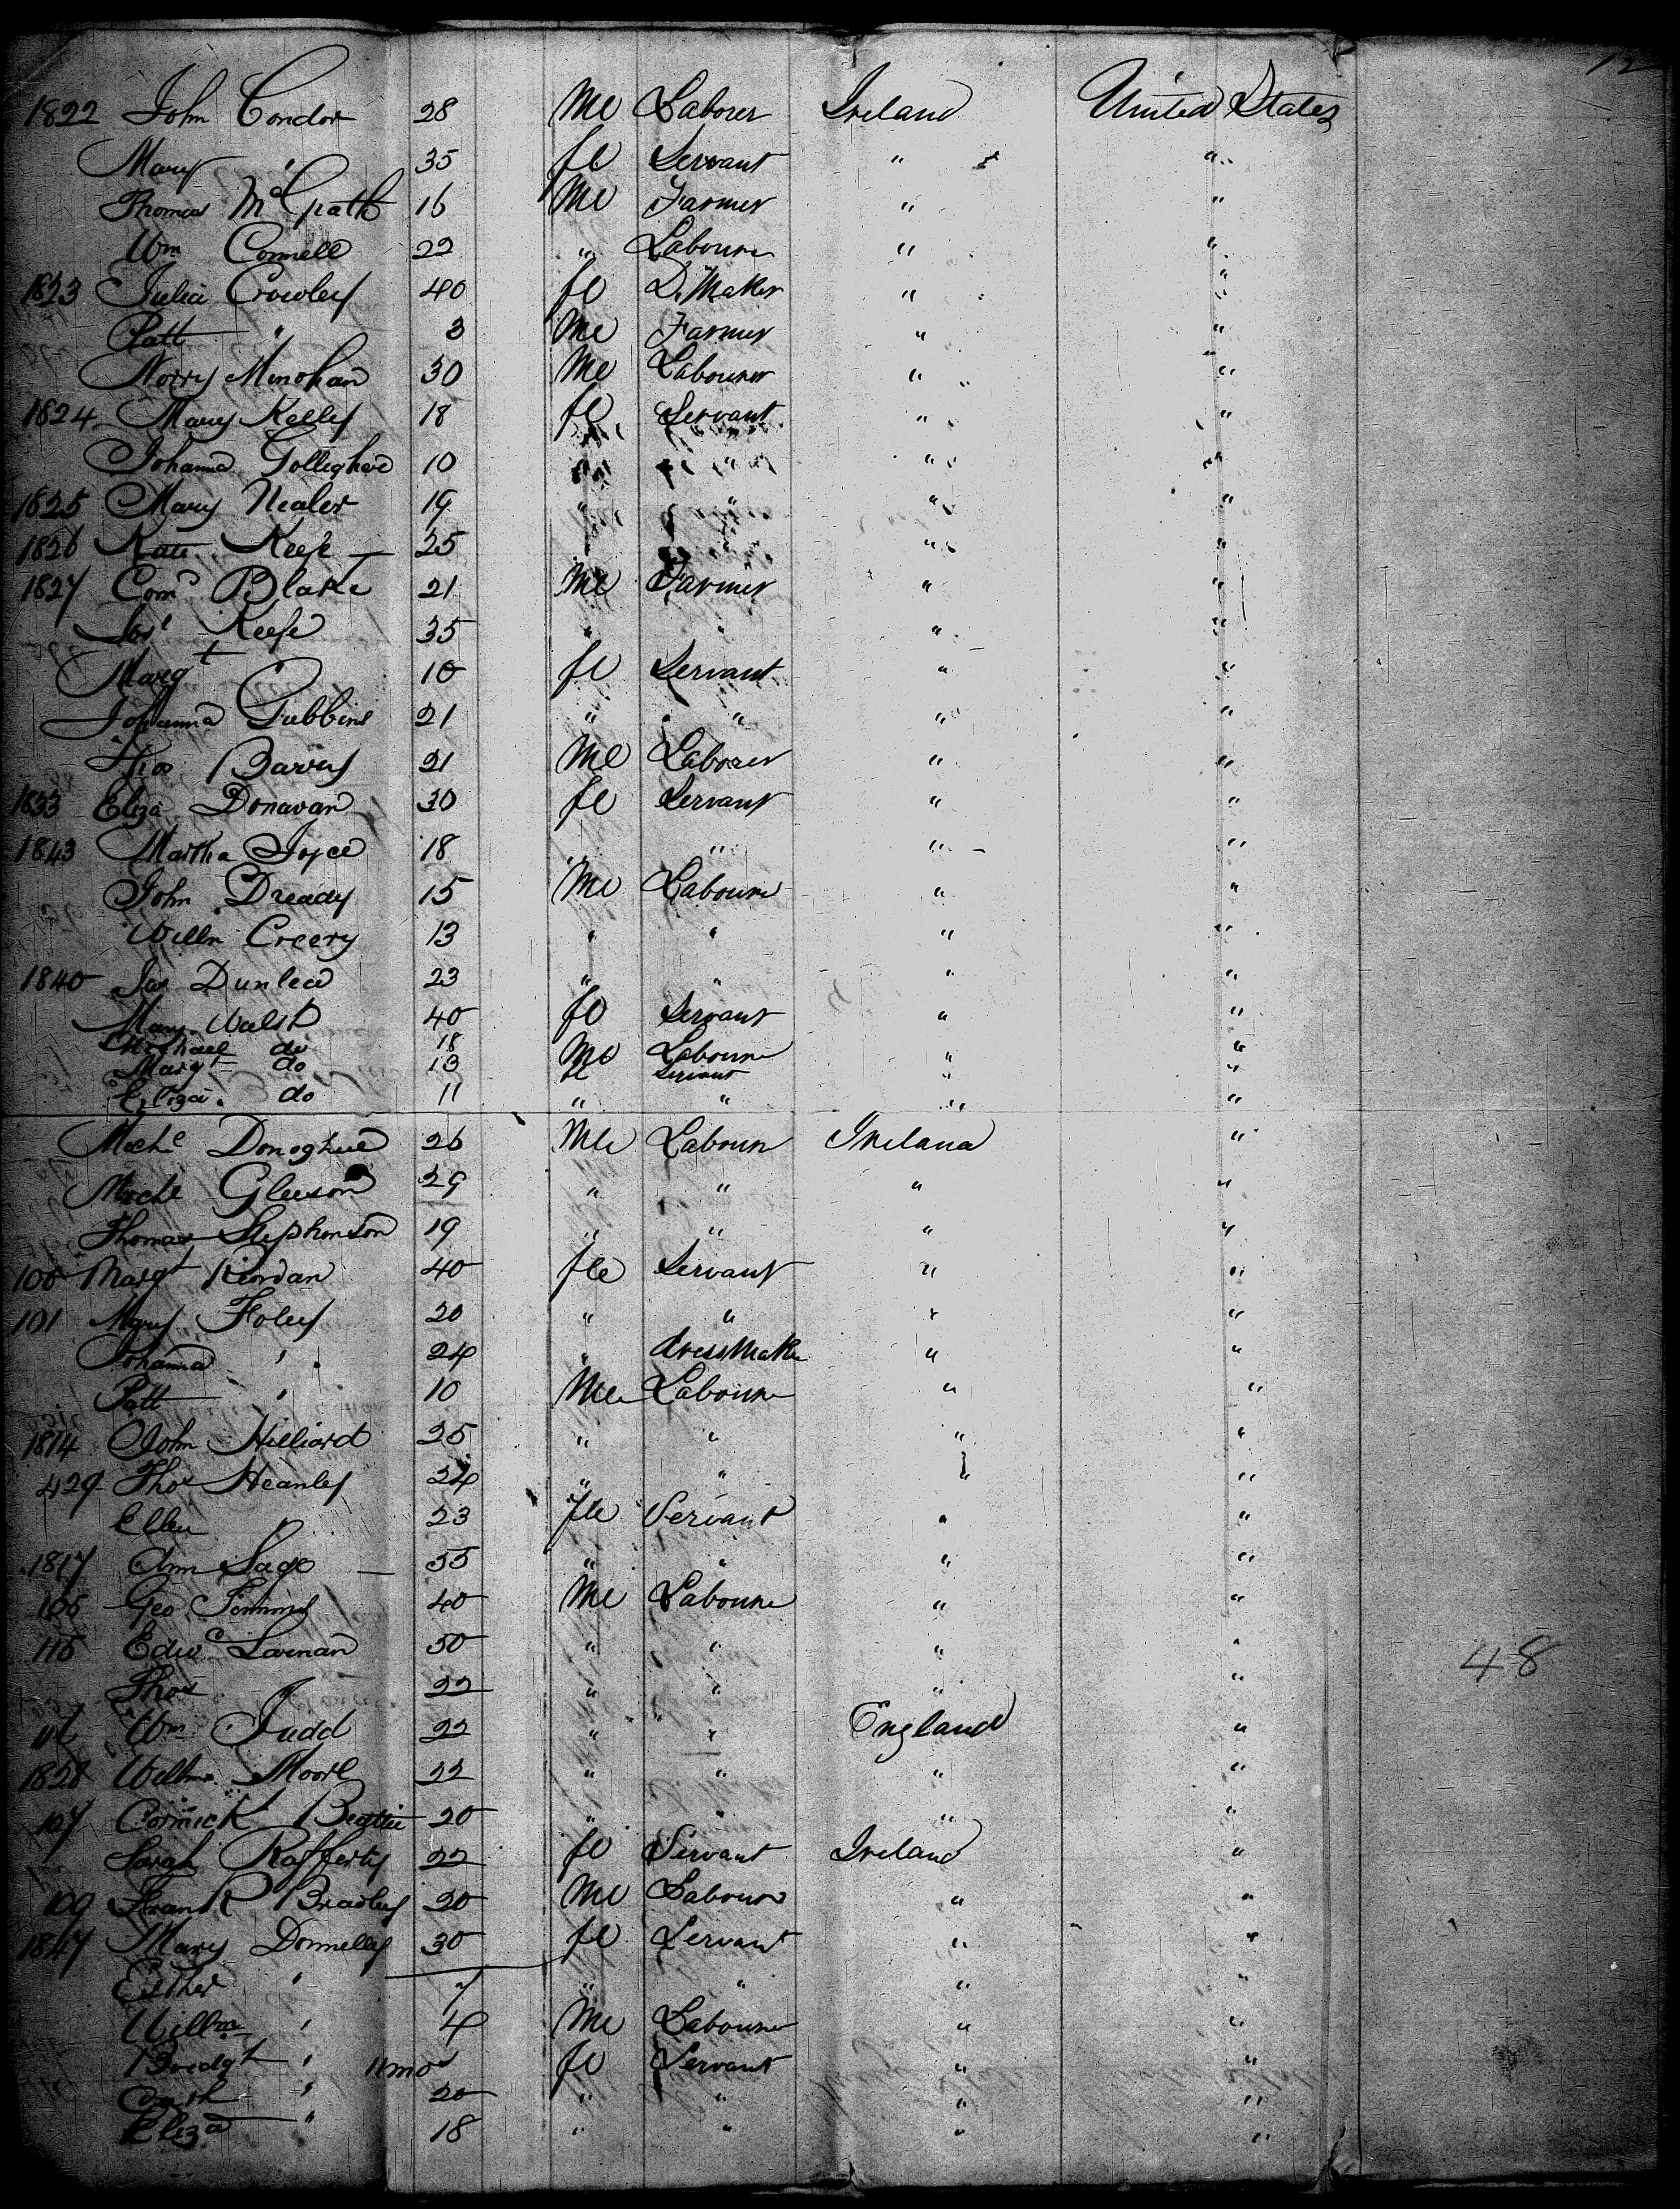 12
1822 John Condon 28 Me Laborer Ireland United States
Mary " 35 fe Servant " "
Thomas McGrath 16 Me Farmer " "
Wm Connell 22 " Labourer " "
1823 Julia Crowley 40 fe D. Maker " "
Patt " 3 Me Farmer " "
Norry Minohan 30 Me Labourer " "
1824 Mary Kelley 18 fe Servant " "
Johanna 10 " " " "
1825 Mary Nealer 19 " " " "
1826 Kate Keefe 25 " " " "
1827 Corns Blake 21 Me Farmer " "
Keefe 35 " " " "
Margt 10 fe Servant " "
Johanna Gubbins 21 " " " "
Thos Barry 21 Me Laborer " "
1833 Eliza Donavan 30 fe Servant " "
1843 Martha Joyce 18 " " " "
John Dready 15 Me Labourer " "
Willm Creery 13 " " " "
1840 Jas Dunlea 23 " " " "
Mary Walsh 40 fe Servant " "
Michael do 18 Me Labourer " "
Margt do 13 fe Servant " "
Eliza do 11 " " " "
Michl Donoghue 26 Mle Labour Ireland "
Michl Gleeson 29 " " " "
Thomas Stephenson 19 " " " "
100 Margt Riordan 40 fle Servant " "
101 Mary Foley 20 " " " "
Johanna " 24 " dressMaker " "
Patt " 10 Mle Labourer " "
1814 John Hilliard 25 " " " "
429 Thos Heanley 24 " " " "
Ellen 23 fle Servant " "
1817 Ann Sage 55 " " " "
105 Geo Timmins 40 Me Labourer " "
115 Edwd Larnan 50 " " " " 48
Thos 22 " " " "
Wm Judd 22 " " England "
1828 Willm Moore 22 " " " "
107 Cormick Beattie 20 " " " "
Sarah Rafferty 22 fe Servant Ireland "
109 Frank Bradley 20 Me Labourer " "
1847 Mary Donnelly 30 fe Servant " "
Esther " 7 " " " "
Willm " 4 Me Labourer " "
Bridgt " 11mos fe Servant " "
" 20 " " " "
Eliza " 18 " " " "